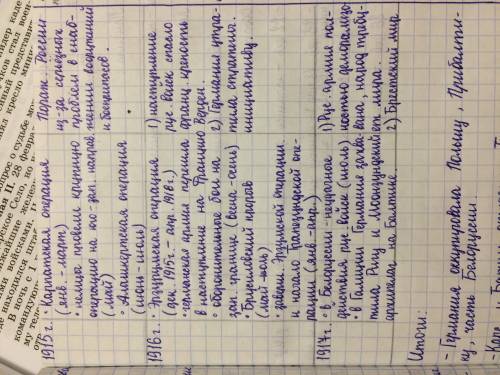 1915г. • Карпатская операция
(янв. - март)
• немцы провели крупную
операцию на юго-зап. направ.
(май)
• Алашкертская операция
(июнь-июль)
Пораж. России
из-за серьезных
проблем в снаб-
жении вооружений
и боеприпасов.
1916г. • Эрзурумская операция
(дек. 1915г. - апр. 1916г.)
• германская армия перешла
в наступление на Францию
• оборонительные бои на
зап. границе (весна-осень)
• Брусиловский прорыв
(май-июль)
• заверш. Эрзумской операции
и начало Трапезундской опе-
рации (янв-апр.)
1) наступление
рус. войск спасло
франц. крепость
Верден.
2) Германия утра-
тила стратегич.
инициативу.
1917г. • в Белоруссии - неудачное
действия рус. войск (июль)
• в Галиции Германия захва-
тила Ригу и Моонзундский
архипелаг на Балтике
1) Рус. армия пол-
ностью деморализо-
вана, народ требу-
ет мира.
2) Брестский мир
Итоги:
- Германия оккупировала Польшу, Прибалти-
ку, часть Белоруссии.